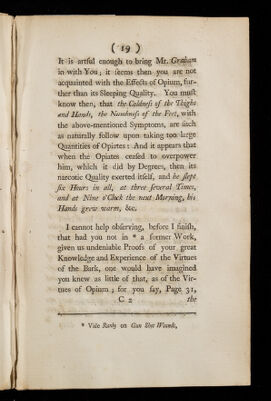 ( 19 )
It is artful enough to bring Mr. Graham
in with You; it seems then you are not
acquainted with the Effects of Opium, fur-
ther than its Sleeping Quality. You must
know then, that the Coldness of the Thighs
and Hands, the Numbness of the Feet, with
the above-mentioned Symptoms, are such
as naturally follow upon taking too large
Quantities of Opiates: And it appears that
when the Opiates ceased to overpower
him, which it did by Degrees, then its
narcotic Quality exerted itself, and he slept
six Hours in all, at three several Times,
and at Nine o'Clock the next Morning, his
Hands grew warm, &c.
I cannot help observing, before I finish,
that had you not in * a former Work,
given us undeniable Proofs of your great
Knowledge and Experience of the Virtues
of the Bark, one would have imagined
you knew as little of that, as of the Vir-
tues of Opium; for you say, Page 31,
C 2 the
* Vide Ranby on Gun Shot Wounds,